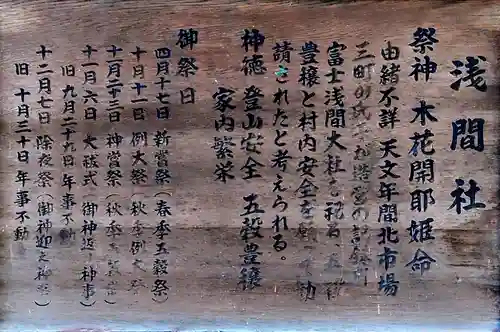 浅間社
祭神 木花開耶姫命
由緒不詳 天文年間北市場
三町の氏
富士浅間大社を
豊穣と村内安全を
請されたと考えられる。
神徳 登山安全 五穀豊穣
家内繁栄
御祭日
四月十七日 祈年祭(春季五穀祭)
十月十一日 例大祭(秋季例大祭)
十一月二十三日 神嘗祭(秋季
十一月六日 大祓式 御神送り神事
旧九月二十九日年事不動
十二月七日 除夜祭(御神迎え神事)
旧十月三十日年事不動